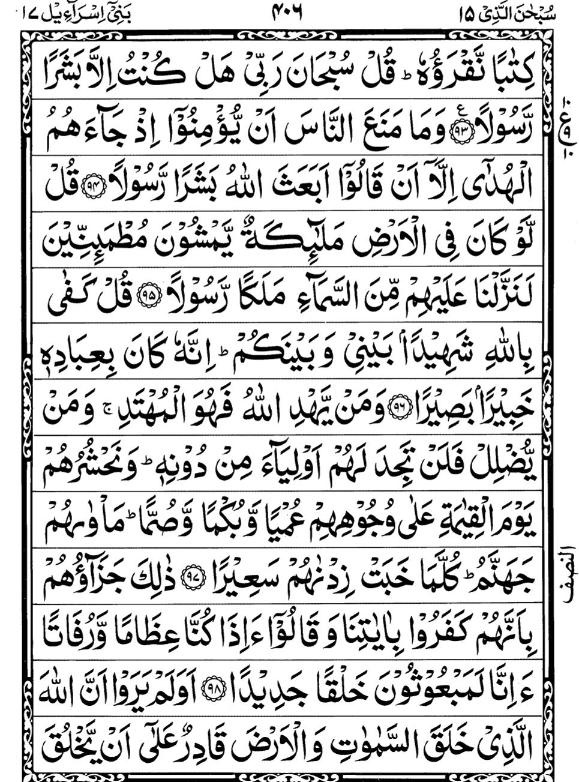 سُبۡحٰنَ الَّذِیۡۤ ۱۵
۴۰۶
بَنِیۡۤ اِسۡرَآءِیۡل ۱۷
كِتٰبًا نَّقۡرَؤُهٗ ؕ قُلۡ سُبۡحَانَ رَبِّیۡ هَلۡ كُنۡتُ اِلَّا بَشَرًا
رَّسُوۡلًا ﴿۹۳﴾ۧ وَمَا مَنَعَ النَّاسَ اَنۡ یُّؤۡمِنُوۡۤا اِذۡ جَآءَهُمُ
الۡهُدٰۤی اِلَّاۤ اَنۡ قَالُوۡۤا اَبَعَثَ اللّٰهُ بَشَرًا رَّسُوۡلًا ﴿۹۴﴾ قُلۡ
لَّوۡ كَانَ فِی الۡاَرۡضِ مَلٰٓئِكَةٌ یَّمۡشُوۡنَ مُطۡمَئِنِّیۡنَ
لَنَزَّلۡنَا عَلَیۡهِمۡ مِّنَ السَّمَآءِ مَلَكًا رَّسُوۡلًا ﴿۹۵﴾ قُلۡ كَفٰی
بِاللّٰهِ شَهِیۡدًۢا بَیۡنِیۡ وَ بَیۡنَكُمۡ ؕ اِنَّهٗ كَانَ بِعِبَادِهٖ
خَبِیۡرًۢا بَصِیۡرًا ﴿۹۶﴾ وَمَنۡ یَّهۡدِ اللّٰهُ فَهُوَ الۡمُهۡتَدِ ۚ وَمَنۡ
یُّضۡلِلۡ فَلَنۡ تَجِدَ لَهُمۡ اَوۡلِیَآءَ مِنۡ دُوۡنِهٖ ؕ وَنَحۡشُرُهُمۡ
یَوۡمَ الۡقِیٰمَةِ عَلٰی وُجُوۡهِهِمۡ عُمۡیًا وَّ بُكۡمًا وَّ صُمًّا ؕ مَاۡوٰىهُمۡ
جَهَنَّمُ ؕ كُلَّمَا خَبَتۡ زِدۡنٰهُمۡ سَعِیۡرًا ﴿۹۷﴾ ذٰلِكَ جَزَآؤُهُمۡ
بِاَنَّهُمۡ كَفَرُوۡا بِاٰیٰتِنَا وَ قَالُوۡۤا ءَاِذَا كُنَّا عِظَامًا وَّ رُفَاتًا
ءَ اِنَّا لَمَبۡعُوۡثُوۡنَ خَلۡقًا جَدِیۡدًا ﴿۹۸﴾ اَوَلَمۡ یَرَوۡا اَنَّ اللّٰهَ
الَّذِیۡ خَلَقَ السَّمٰوٰتِ وَالۡاَرۡضَ قَادِرٌ عَلٰۤی اَنۡ یَّخۡلُقَ
النصف